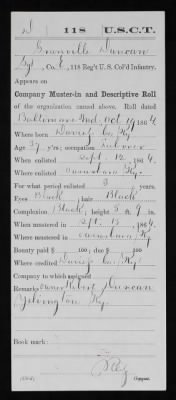 D | 118 | U.S.C.T.
Granville Duncan
Sgt, Co. E, 118 Reg't U. S. Col'd Infantry.
Appears on
Company Muster-in and Descriptive Roll
of the organization named above. Roll dated
Baltimore Md. Oct 19, 1864.
Where born Daviess Co., Ky.
Age 37 y'rs; occupation Laborer
When enlisted Sept. 12, 1864.
Where enlisted Owensboro, Ky.
For what period enlisted 3 years.
Eyes Black; hair Black
Complexion Black; height 5 ft. 9 in.
When mustered in Sept. 13, 1864.
Where mustered in Owensboro, Ky.
Bounty paid $ 100; due $ 100
Where credited Daviess Co., Ky.
Company to which assigned
Remarks: Owner Robert Duncan
Yelvington Ky.
Book mark:
Copyist.